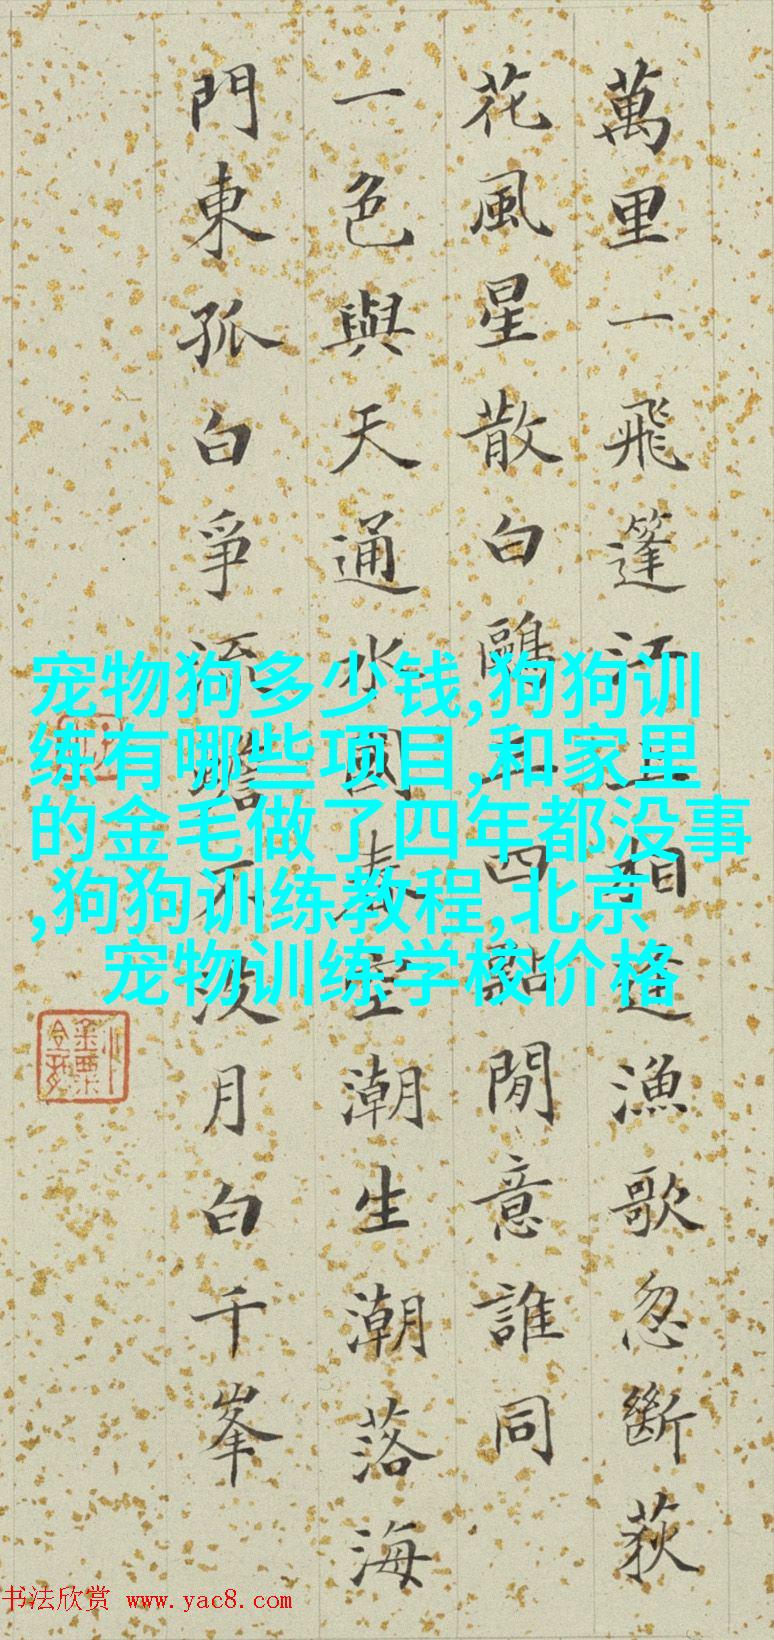 萬里一飛篷江上相逢漁歌忽斷荻
花風星散白鷗三四點閒意誰同
一色與天通水國春空潮生潮落海
門東孤白爭流蟾不沒月白千峯
宠物狗多少钱,狗狗训
练有哪些项目,和家里
的金毛做了四年都没事
,狗狗训练教程,北京
宠物训练学校价格
书法欣赏 www.yac8.com